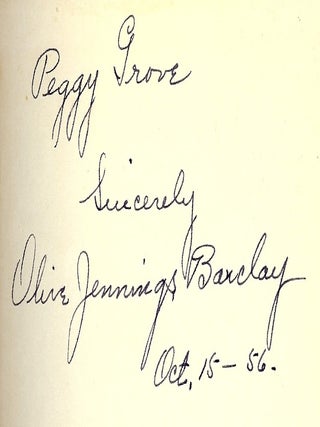 Peggy Grove
Sincerely
Olive Jennings Barclay
Oct. 15 - 56.